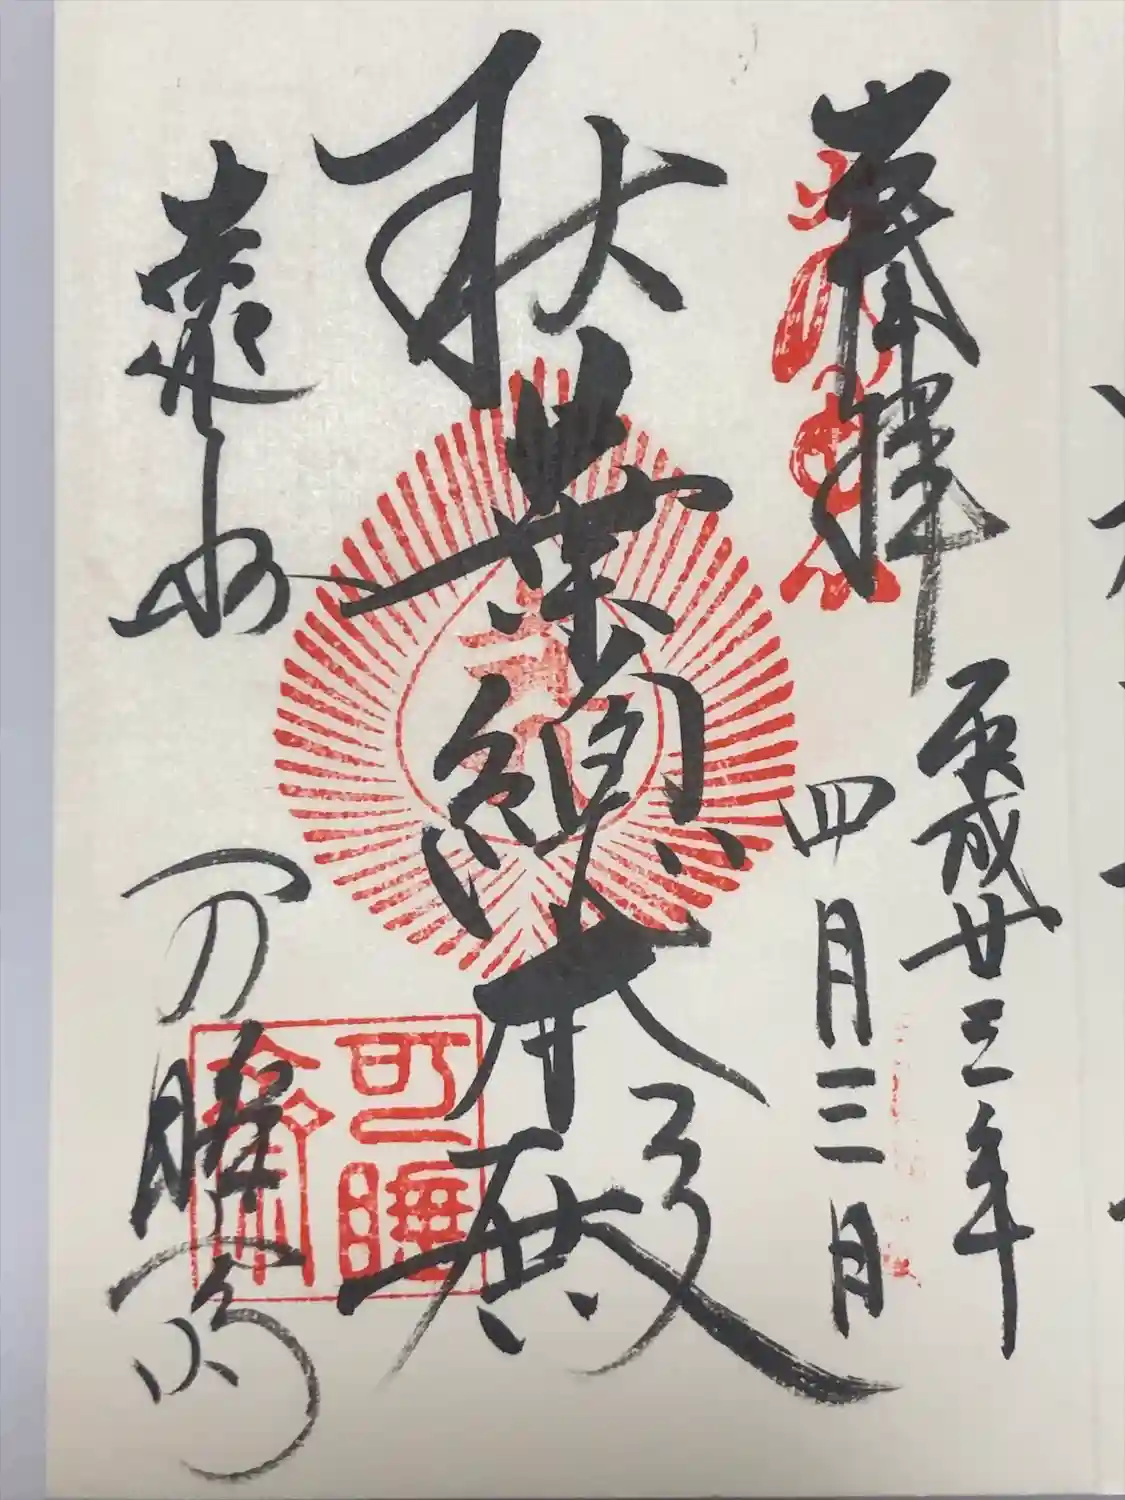 奉拝
平成廿三年
四月三日
秋葉總本殿
遠州
可睡斎
可睡
齋